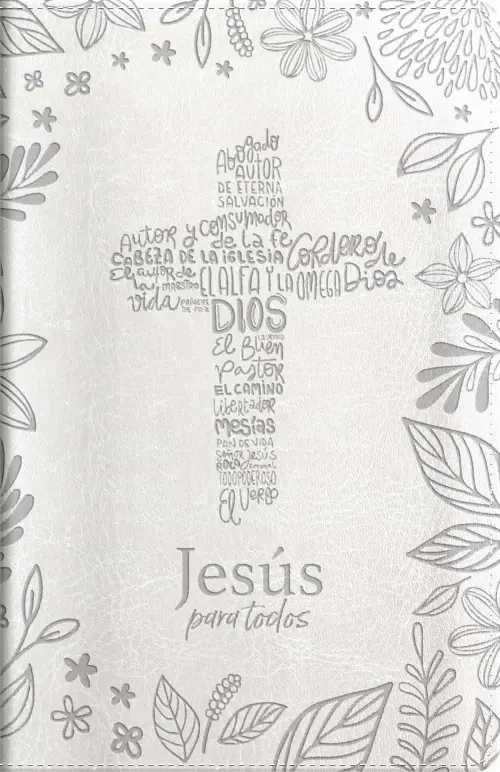 Abogado
AUTOR
DE ETERNA
SALVACIÓN
Autor y consumador
de la fe
CABEZA DE LA IGLESIA Cordero de Dios
El autor de la vida
MAESTRO
EL ALFA Y LA OMEGA
PRÍNCIPE DE PAZ
DIOS
El Buen
Pastor
EL CAMINO
libertador
Mesías
PAN DE VIDA
SEÑOR JESÚS
ROCA
TODOPODEROSO
El Verbo
Jesús
para todos